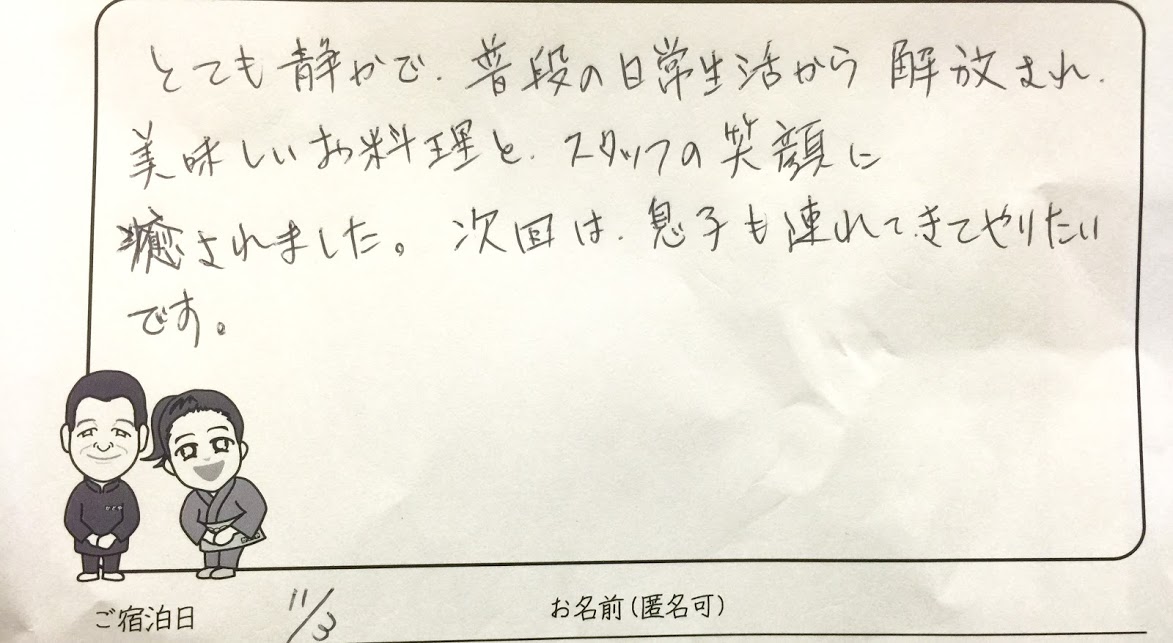 とても静かで、普段の日常生活から解放され、
美味しいお料理と、スタッフの笑顔に
癒されました。次回は、息子も連れてきてやりたい
です。
ご宿泊日 11/3 お名前(匿名可)